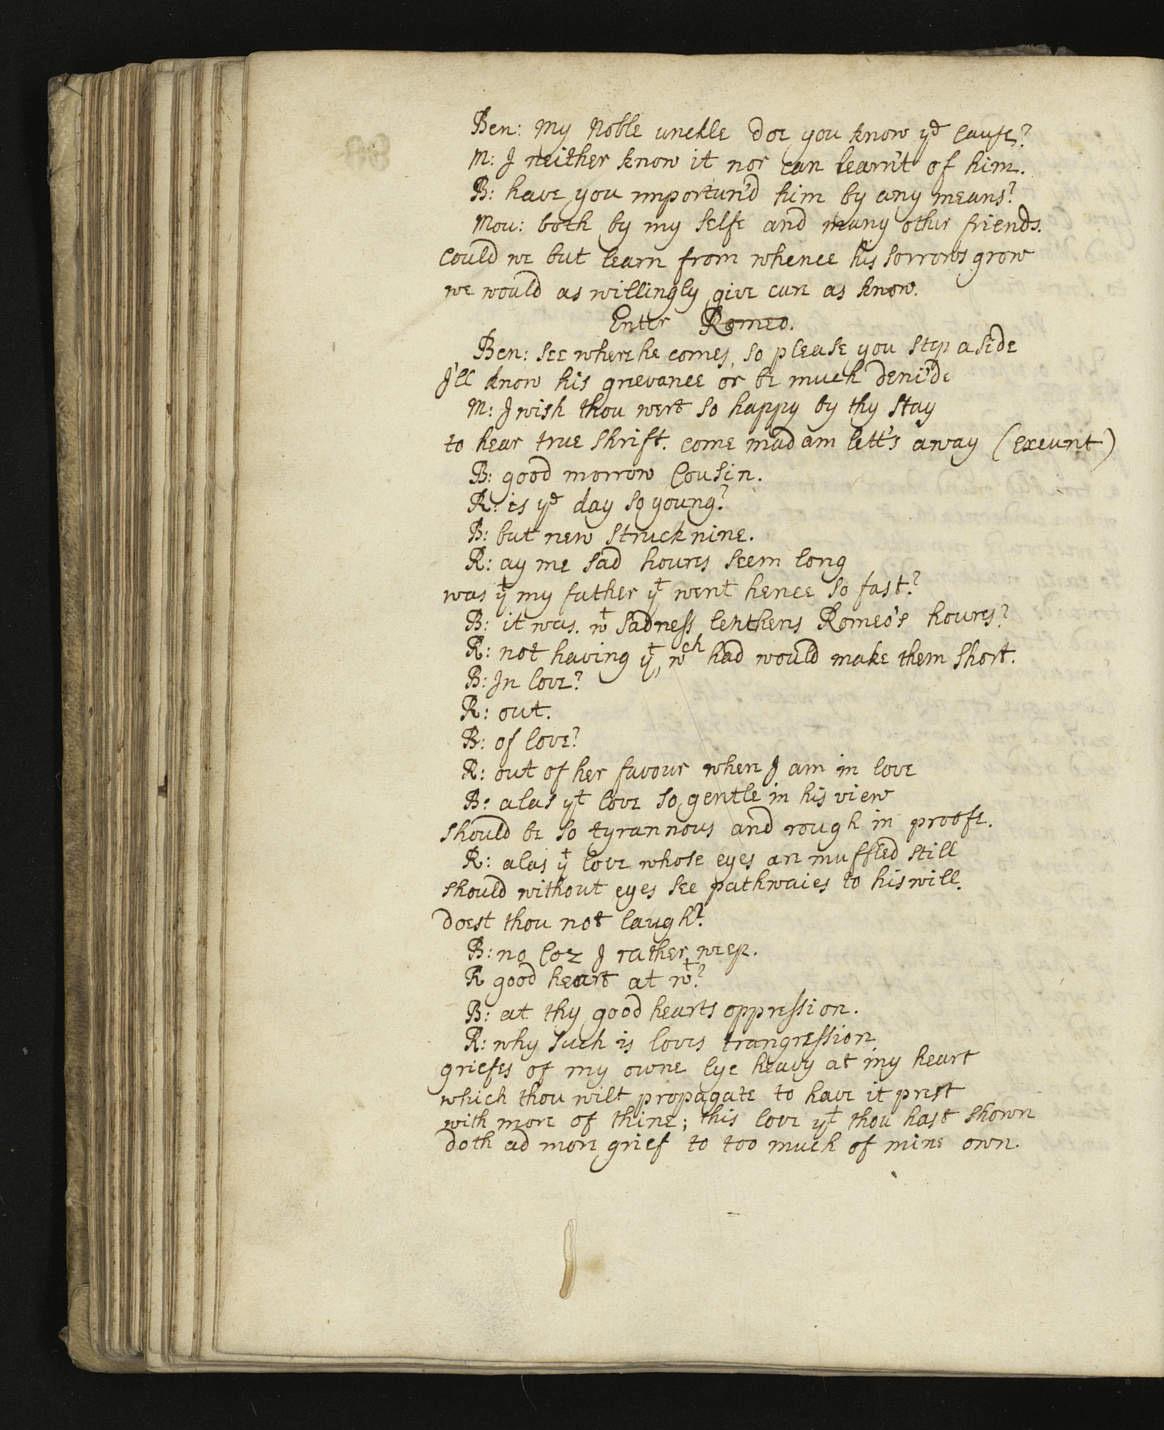 Ben: My Noble unckle doe you know yͤ cause?
M: I neither know it nor can learn't of him.
B: have you importun'd him by any means?
Mou: both by my selfe and many other friends.
Could we but learn from whence his sorrows grow
we would as willingly give cure as know.
Enter Romeo.
Ben: see where he comes, so please you step aside
I'll know his grievance or be much deni'de
M: I wish thou wert so happy by thy stay
to hear true shrift. come madam lett's away (exeunt)
B: good morrow Cousin.
R: is yͤ day so young?
B: but new struck nine.
R: ay me sad houres seem long
was yͭ my father yͭ went hence so fast?
B: it was. wͭ sadness lenthens Romeo's houres?
R: not having yͭ, wᶜʰ had would make them short.
B: In love?
R: out.
B: of love?
R: out of her favour when I am in love
B: alas yͭ love so gentle in his view
should be so tyrannous and rough in proofe.
R: alas yͭ love whose eyes are muffled still
should without eyes see pathwaies to his will.
doest thou not laugh?
B: no Coz I rather weep.
R good heart at wͭ?
B: at thy good hearts oppression.
R: why such is loves trangression
griefes of my owne lye heavy at my heart
which thou wilt propagate to have it prest
with more of thine; this love yͭ thou hast shown
doth ad more grief to too much of mine own.